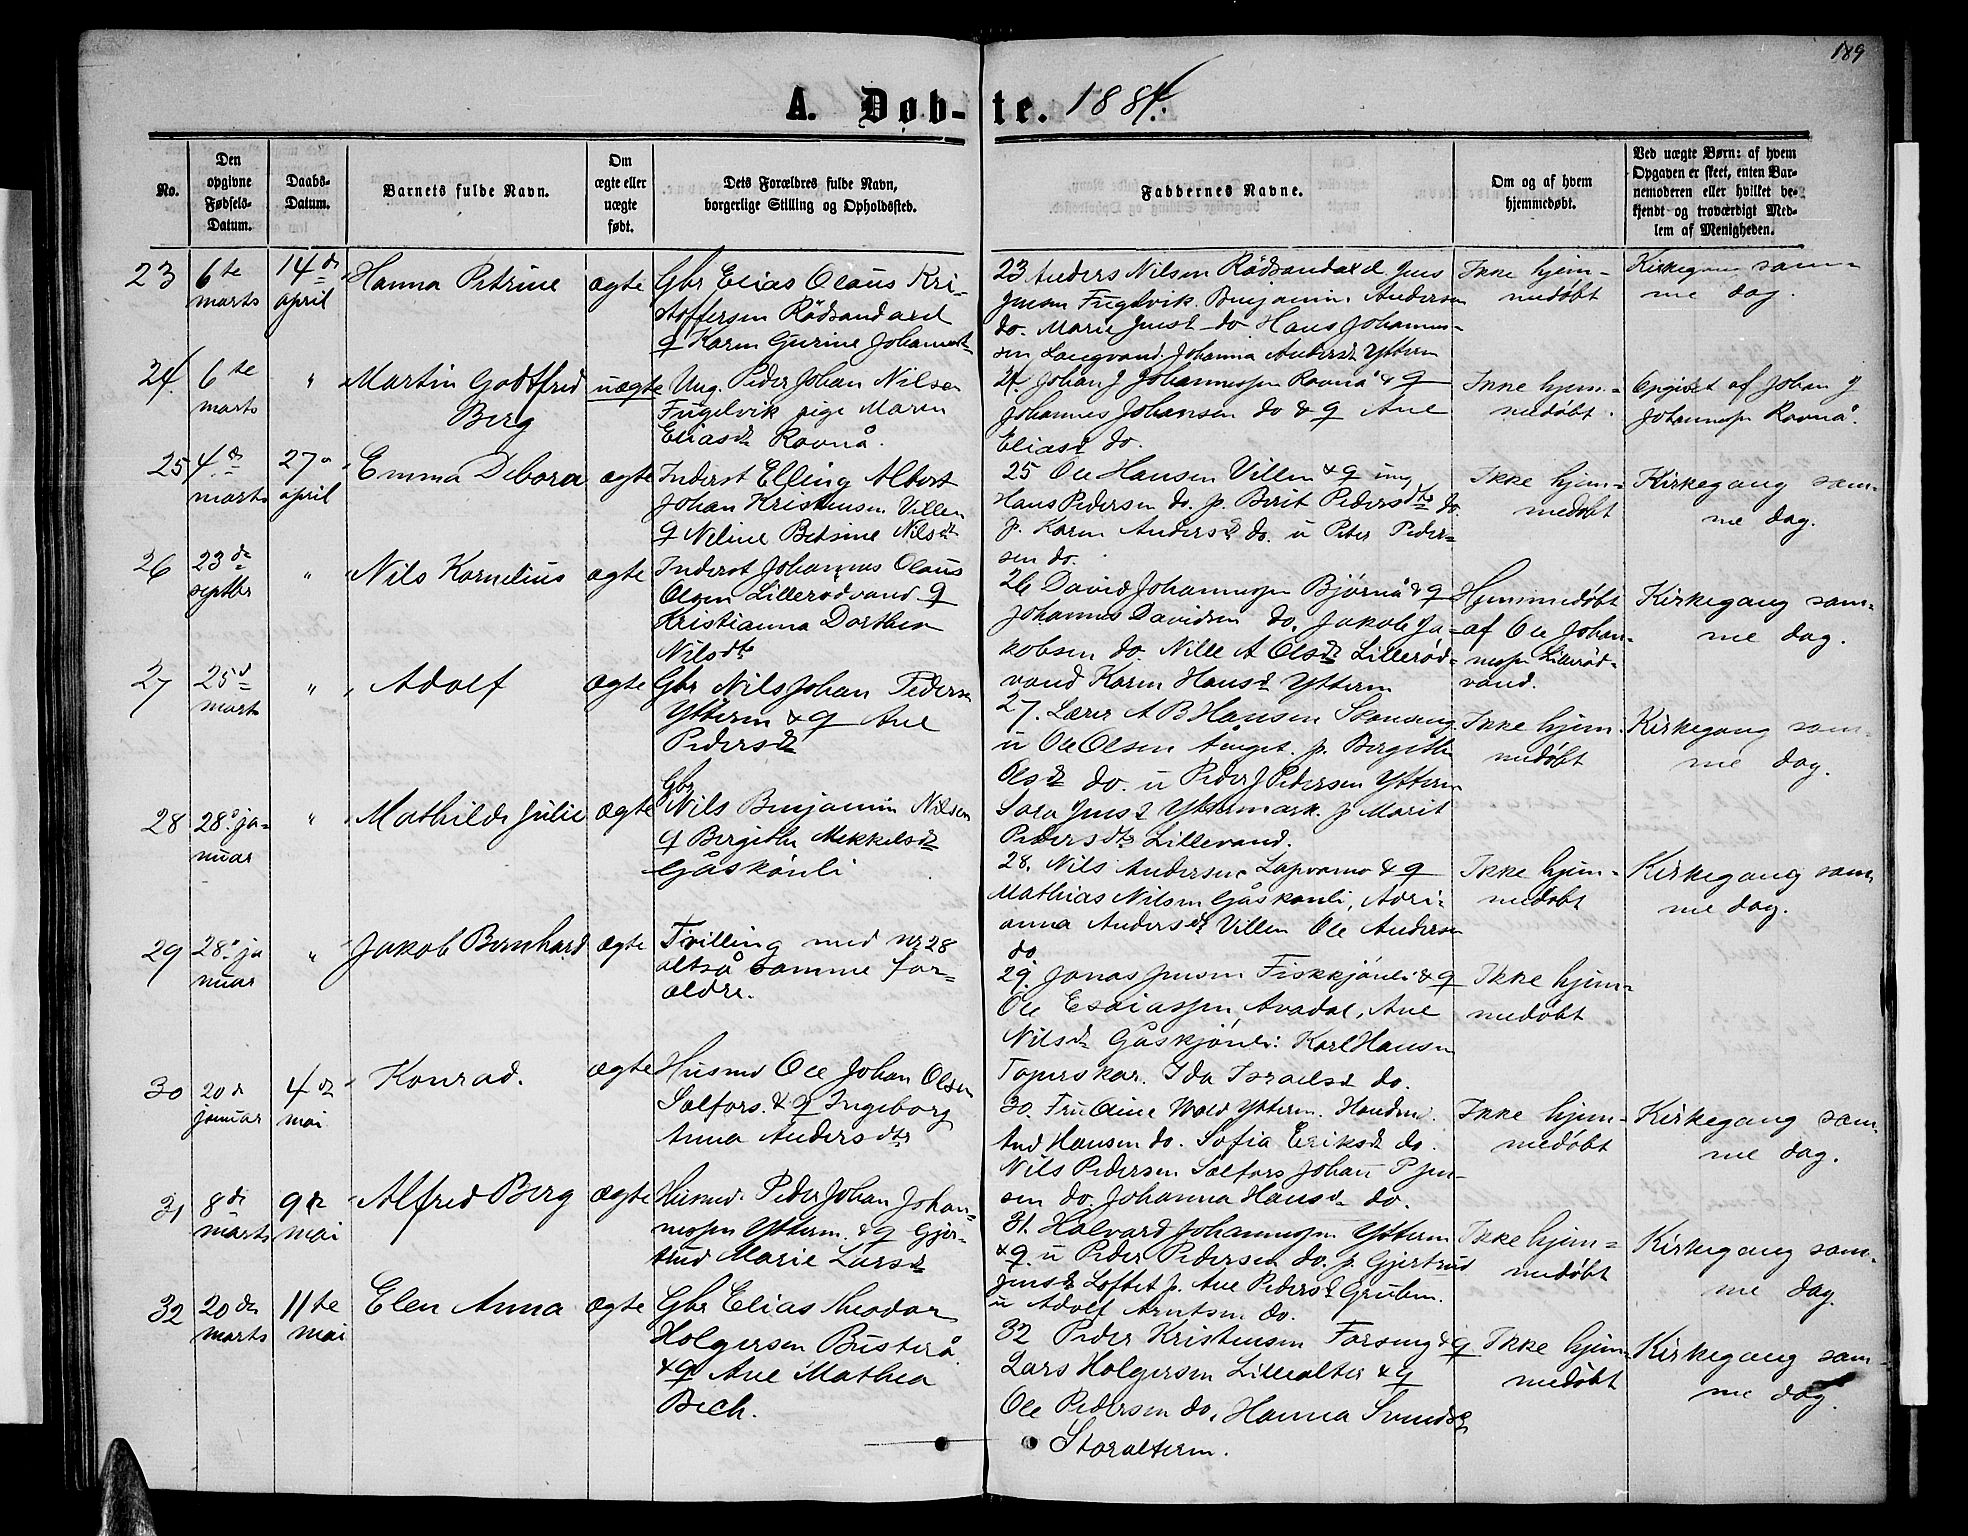 189
A. Døb-te. 1884.
No.
Den opgivne Fødsels-Datum.
Daabs-Datum.
Barnets fulde Navn.
Om ægte eller uægte født.
Dets Forældres fulde Navn, borgerlige Stilling og Opholdssted.
Faddernes Navne.
Om og af hvem hjemmedøbt.
Ved uægte Børn: af hvem Opgaven er skeet, enten Barnemoderen eller hvilket bekjendt og troværdigt Medlem af Menigheden.
23
6te marts
14de april
Hanna Petrine
ægte
Gbr Elias Olaus Kri-
stoffersen Rödsandaxel
& Karen Gurine Johannesd
23 Anders Nilsen Rödsandaxel Jens
Jensen Fuglvik. Benjamin Andersen
do. Marie Jensd do Hans Johannes-
sen Langvand. Johanna Andersd Yttern
Ikke hjem-
medøbt
Kirkegang sam-
me dag.
24.
6te marts
"
Martin Godtfred
Berg
uægte
Ung. Peder Johan Nilsen
Fuglvik pige Maren
Eliasd Ravnå.
24. Johan J Johannessen Ravnå & q
Johannes Johansen do & q Ane
Eliasd do.
Ikke hjem-
medøbt.
Opgivet af Johan J
Johannessen Ravnå.
25
4de marts
27de april
Emma Debora
ægte
Inderst Elling Albert
Johan Kristensen Villen
q Neline Betsine Nilsd
25 Ole Hansen Villen & q ung
Hans Pedersen do. p. Berit Pedersdtr do.
p. Karen Andersd do. u Peter Peder-
sen do.
Ikke hjem-
medøbt
Kirkegang sam-
me dag.
26
23de septbr
"
Nils Kornelius
ægte
Inderst Johannes Olaus
Olsen Lillerødvand q
Kristianna Dorthea
Nilsdtr
26 David Johannessen Bjørnå & q
Johannes Davidsen do. Jakob Ja-
kobsen do. Nille A Olsd Lillerød-
vand Karen Hansd Yttern
Hjemmedøbt
af Ole Johan-
nessen Lillerød-
vand.
Kirkegang sam-
me dag.
27
25de marts
"
Adolf
ægte
Gbr Nils Johan Pedersen
Yttern & q Ane
Pedersd
27. Lærer A B Hansen Skonseng
u Ole Olsen Ånget. p. Bergithe
Olsd do. u Peder J Pedersen Yttern
Sara Jensd Ytternmark. p Marit
Pedersdtr Lillevand.
Ikke hjem-
medøbt
Kirkegang sam-
me dag.
28
28de ja-
nuar
"
Mathilde Julie
ægte
Gbr
Nils Benjamin Nilsen
q Bergithe Mekkelsd
Gåskønli
28. Nils Andersen Lapvamo & q
Mathias Nilsen Gåskønli, Adri-
anna Andersd Villen Ole Andersen
do
Ikke hjem-
medøbt
Kirkegang sam-
me dag.
29
28de ja
nuar
"
Jakob Bernhard
ægte
Tvilling med nr 28
altså samme for-
ældre.
29. Jonas Jensen Fiskkjønli & q
Ole Esaiassen Avadal, Ane
Nilsd Gåskjønli: Karl Hansen
Toperskar. Ida Israelsd do.
Ikke hjem-
medøbt
30
20de januar
4de mai
Konrad.
ægte
Husmd Ole Johan Olsen
Selfors. & q Ingeborg
Anna Andersdtr
30. Fru Oline Wold Yttern. Handend.
And Hansen do. Sofia Eriksd do.
Nils Pedersen Selfors Johan P Jen-
sen do Johanna Hansd do.
Ikke hjem-
medøbt
Kirkegang sam-
me dag.
31
8de marts
9de mai
Alfred Berg
ægte
Husmd. Peder Johan Johan-
nessen Yttern. & q Gjer-
trud Marie Larsd
31. Halvard Johannessen Yttern
& q. u Peder Pedersen do. p. Gjertrud
Jensd Loftet p. Ane Pedersd Gruben.
u Adolf Arntsen do.
Ikke hjem-
medøbt
Kirkegang sam-
me dag.
32
20de marts
11te mai
Elen Anna
ægte
Gbr Elias Theodor
Holgersen Busterå
& q Ane Mathea
Bech.
32 Peder Kristensen Forseng & q
Lars Holgersen Lillealter & q
Ole Pedersen do, Hanna Svendsd
Storaltern.
Ikke hjem-
medøbt
Kirkegang sam-
me dag.